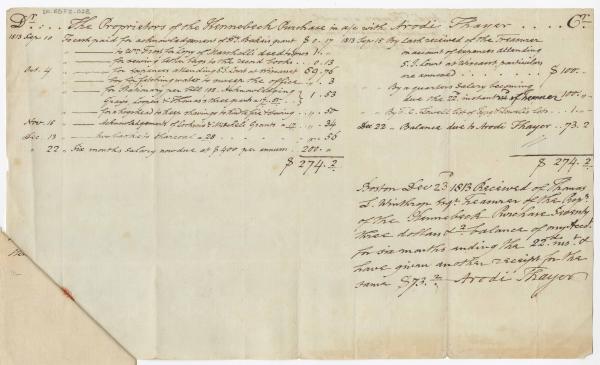 Dr. The Proprietors of the Kennebeck Purchase in a/c with Arodi Thayer Cr.
1813 Sep 10 To cash paid for acknowledgement of grant $0.17
to Wm Frost for Copy of Marshall's deed to
for sewing letter tags to the record books 0.13
Oct. 4 for expences attending S.J. Court at Wiscasset 69.76
for fetching water to the office 3
for Stationary per bill Acknowledging
Grays, Loomis & Thomas three grants 1.53
for a hogshead to keep shavings to kindle fire & sawing 50
Nov. 15 Acknowledgement of & Mitchels Grants 34
Dec 13 two baskets charcoal @ 28 56
22 Six months salary now due at $400 per annum 200
$274.2
1813 Sep. 15 By Cash received of the Treasurer
on account of expences attending
S.J. Court at Wiscasset, particulars
are annexed $100
By a quarters salary becoming
due the 22 instant 100
By T. L.
Dec 22 Balance due to Arodi Thayer 73.2
$274.2
Boston Dec 23d. 1813 Received of Thomas
L. Winthrop Esqr. Treasurer of the Propr.
of the Kennebeck Purchase Seventy
three dollars & 2 balance of my Acct.
for six months ending the 22d. inst. &
have given another receipt for the
same $73.2 Arodi Thayer